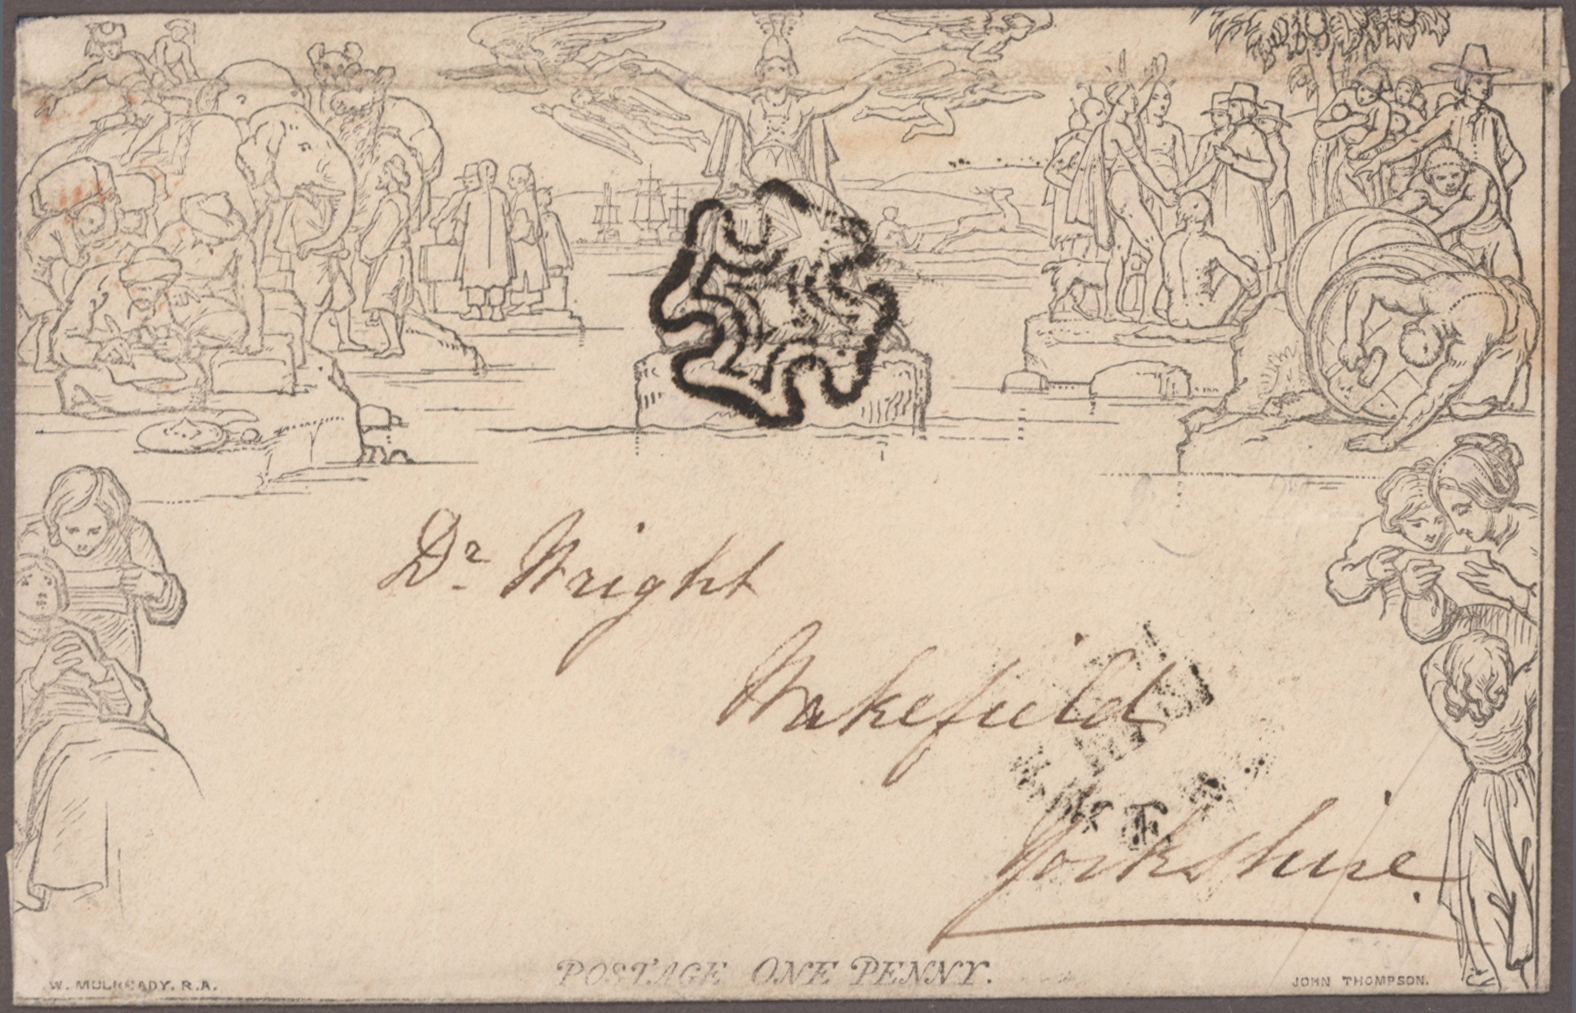 Dr Wright
Wakefield
Yorkshire.
POSTAGE ONE PENNY.
W. MULREADY. R.A.
JOHN THOMPSON.